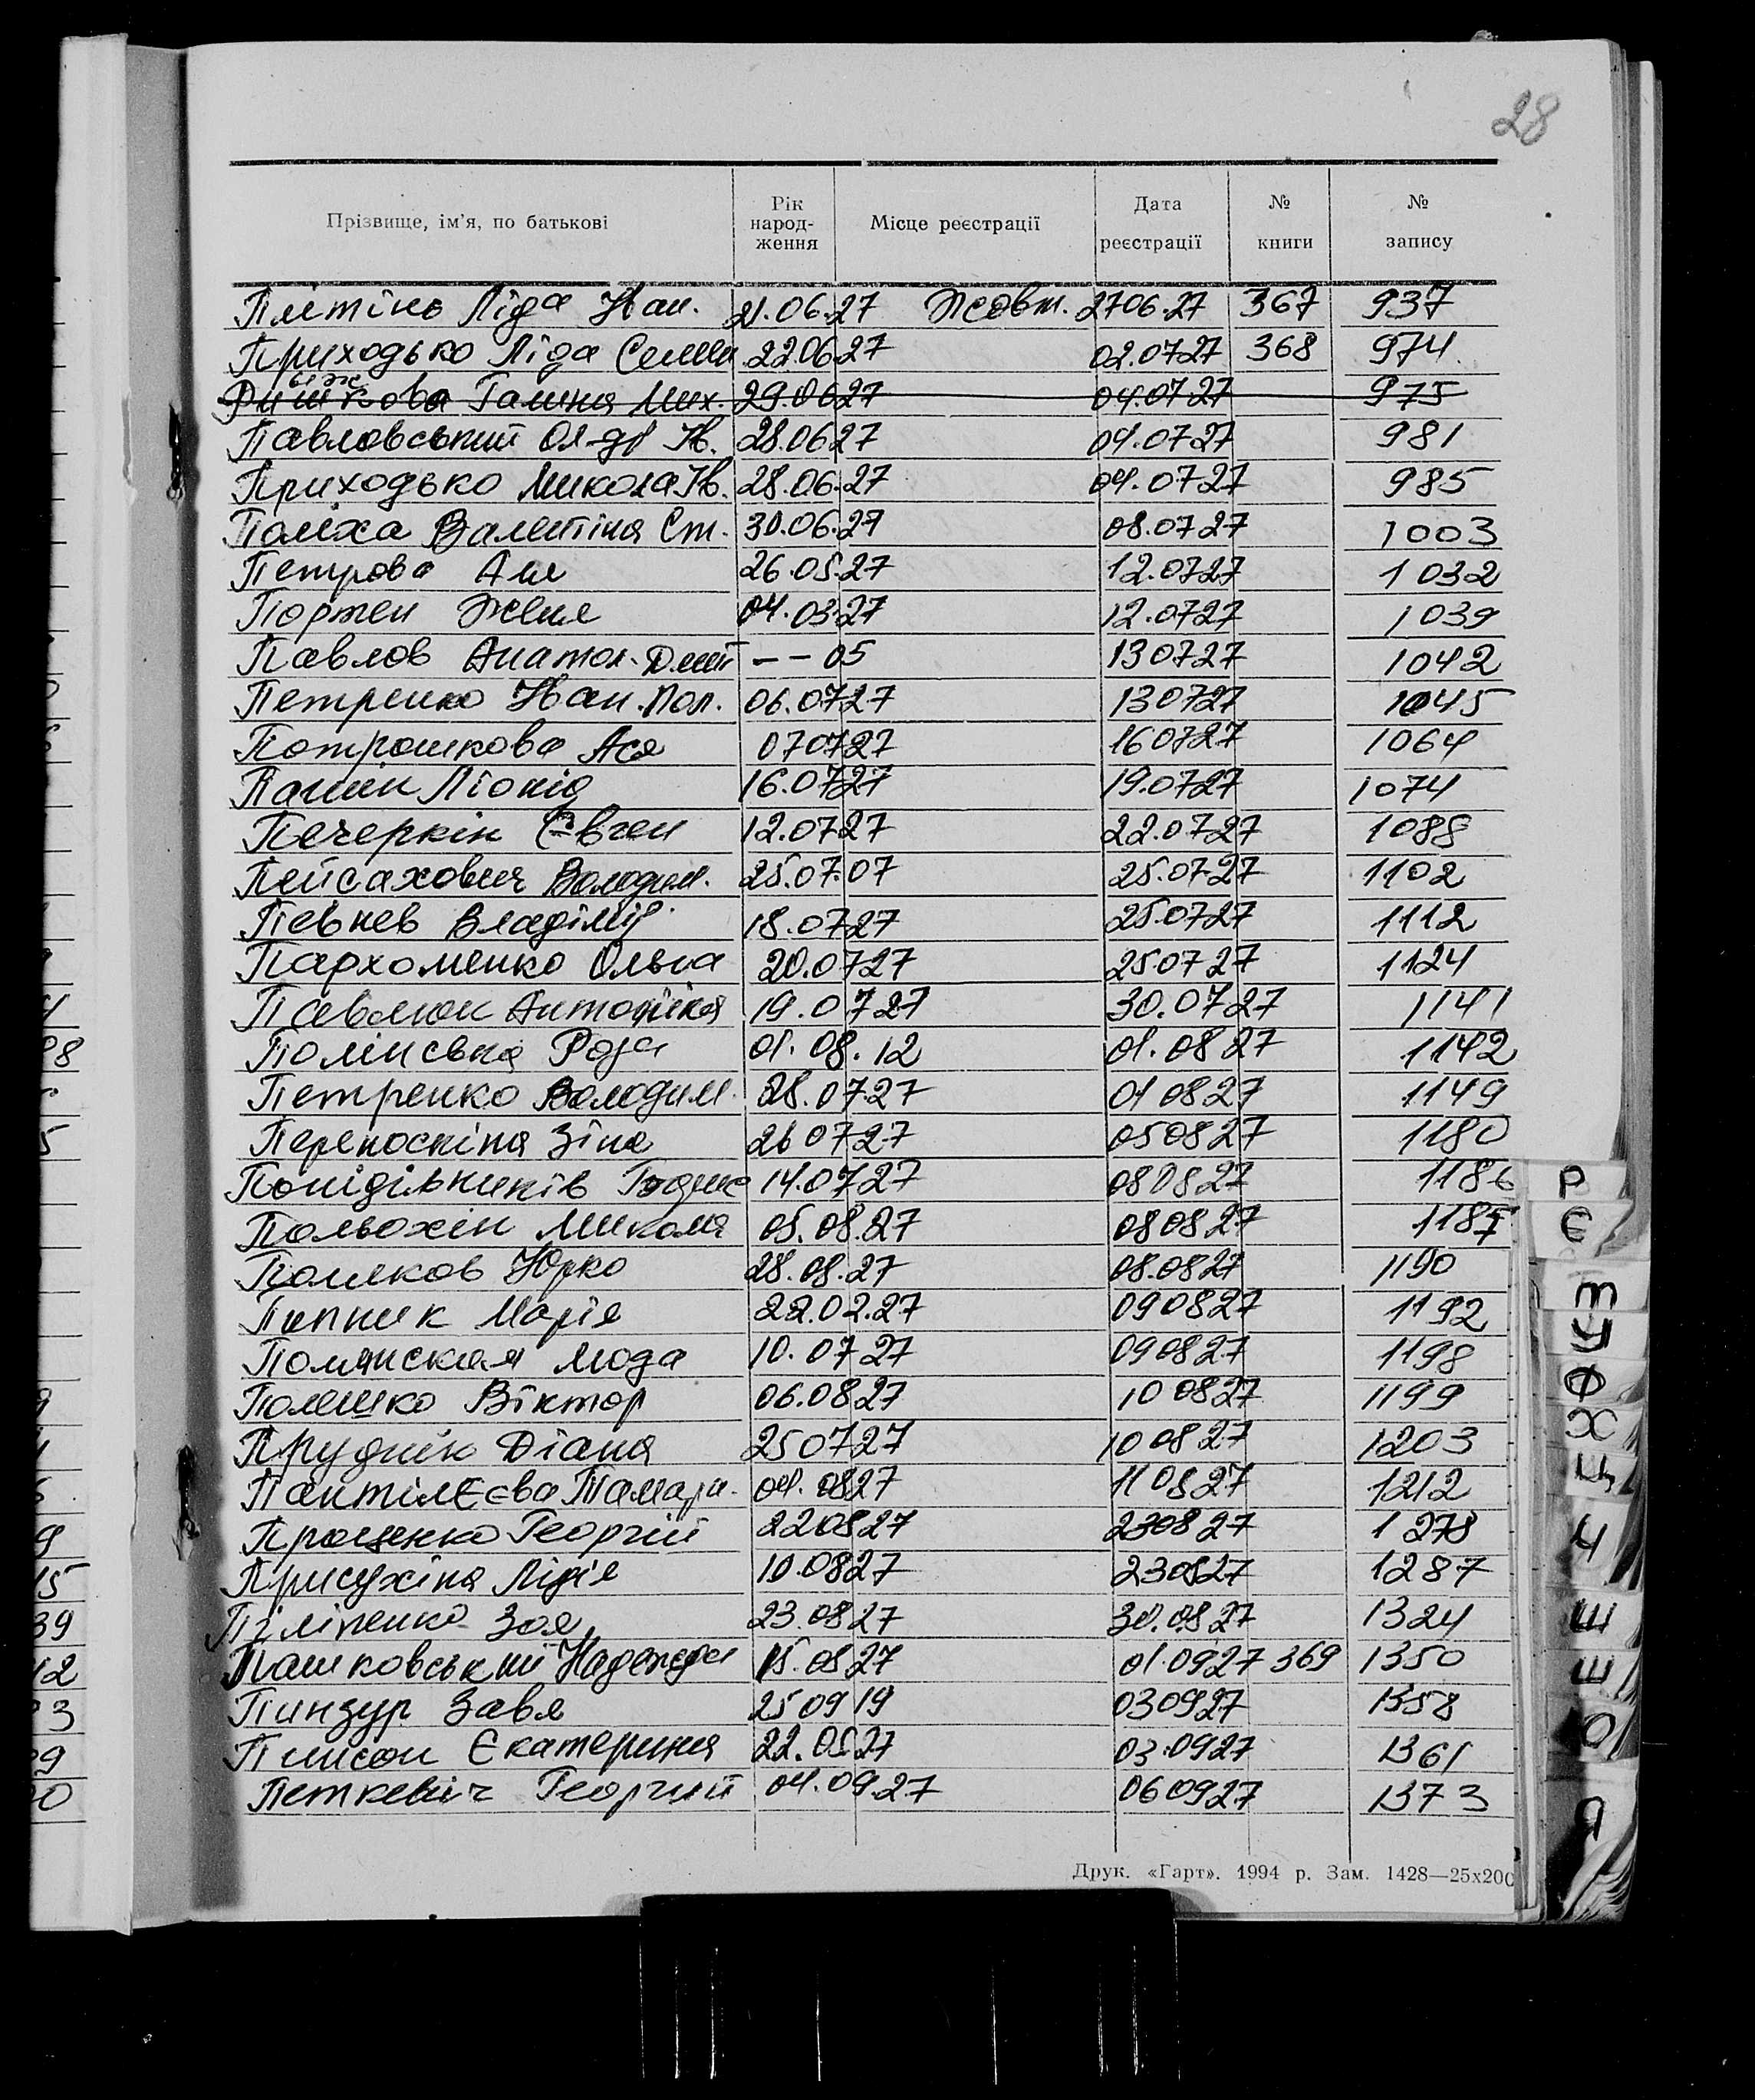 28
Прізвище, ім'я, по батькові Рік народ-ження Місце реєстрації Дата реєстрації № книги № запису
Плітінь Ліда Іван. 21.06.27 Жовт. 27 06.27 367 937
Приходько Ліда Семен 22.06 27 02.07 27 368 974
Галина Мих. 29.06 27 04.07 27 975
Павловський Ол-др Ів. 28.06 27 04.07 27 981
Приходько Микола Ів. 28.06.27 04.07 27 985
Поліха Валентіна Ст. 30.06.27 08.07 27 1003
Петрова Аня 26.05.27 12.07 27 1032
Портен Женя 04.03.27 12.07 27 1039
Павлов Анатол. Дмит – – 05 13 07 27 1042
Петренко Іван. Пол. 06.07 27 13 07 27 1045
Потрошкова Ася 07 07 27 16 07 27 1064
Панин Ліонід 16.07 27 19.07 27 1074
Печеркін Євген 12.07 27 22.07 27 1088
Пейсахович Володим. 25.07.07 25.07 27 1102
Певнев Владімір 18.07 27 25 07 27 1112
Пархоменко Ольга 20.07 27 25 07 27 1124
Павлюк Антоніна 19.07 27 30.07 27 1141
Полінська Роза 01.08.12 01.08 27 1142
Петренко Володим. 28.07.27 01 08 27 1149
Переноскіна Зіна 26 07 27 05 08 27 1180
14.07 27 08 08 27 1186
Польохін Микола 05.08.27 08 08 27 1187
Поляков Юрко 28.08.27 08.08 27 1190
Пипник Марія 22.02.27 09 08 27 1192
Полянская Люда 10.07 27 09 08 27 1198
Полешко Віктор 06.08 27 10 08 27 1199
Пруднік Діана 25 07 27 10 08 27 1203
Пантілєєва Тамара. 04.08 27 11 08 27 1212
Проценко Георгій 22 08 27 23 08 27 1278
Присухіна Лідія 10.08 27 23 08 27 1287
Піліпенко Зоя 23.08 27 30.08 27 1324
Пашковський Надежда 15.08 27 01.09 27 369 1350
Пинзур Завя 25 09 19 03 09 27 1358
Екатерина 22.08 27 03.09 27 1361
Петкевич Георгий 04.09.27 06 09 27 1373
Друк. «Гарт». 1994 р. Зам. 1428—25х200
Р
Є
Т
У
Ф
Х
Ц
Ч
Ш
Щ
Ю
Я